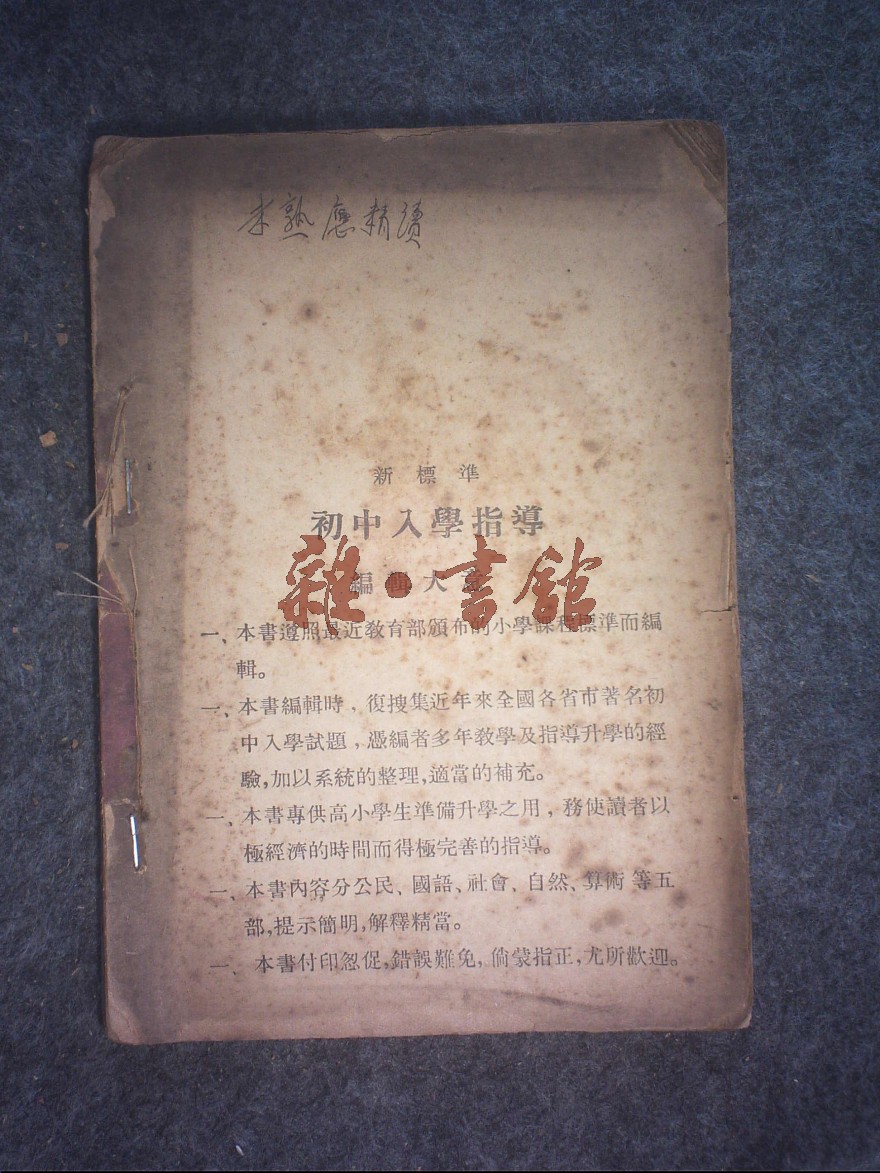 未熟應精讀
新標準
初中入學指導
編輯大意
雜·書館
一、本書遵照最近教育部頒布的小學課程標準而編
輯。
一、本書編輯時,復搜集近年來全國各省市著名初
中入學試題,憑編者多年教學及指導升學的經
驗,加以系統的整理,適當的補充。
一、本書專供高小學生準備升學之用,務使讀者以
極經濟的時間而得極完善的指導。
一、本書內容分公民、國語、社會、自然、算術等五
部,提示簡明,解釋精當。
一、本書付印怱促,錯誤難免,倘蒙指正,尤所歡迎。